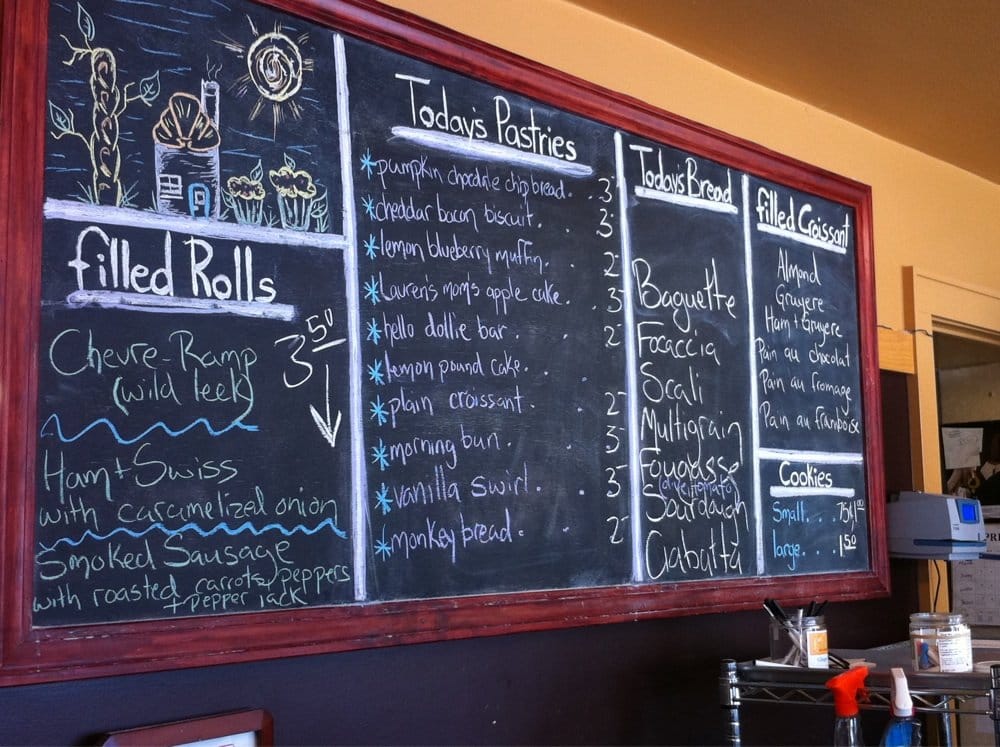 filled Rolls
Chevre-Ramp
(wild leek)
3 50
Ham + Swiss
with caramelized onion
Smoked Sausage
with roasted carrots, peppers
+ pepper jack
Today's Pastries
*pumpkin chocolate chip bread. 3-
*cheddar bacon biscuit. . 3-
*lemon blueberry muffin. . 2-
*Lauren's mom's apple cake. . 3-
*hello dollie bar. . 2-
*lemon pound cake. .
*plain croissant . . 2-
*morning bun. . 3-
*vanilla swirl. . 3-
*monkey bread. . 2-
Today's Bread
Baguette
Focaccia
Scali
Multigrain
Fouga​sse
(olive, tomato)
Sourdough
Ciabatta
filled Croissant
Almond
Gruyere
Ham + Gruyere
Pain au chocolat
Pain au fromage
Pain au framboise
Cookies
Small. . . 75¢/1.00
large. . . 1 50